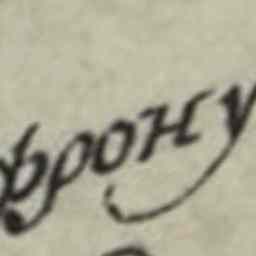 фрону